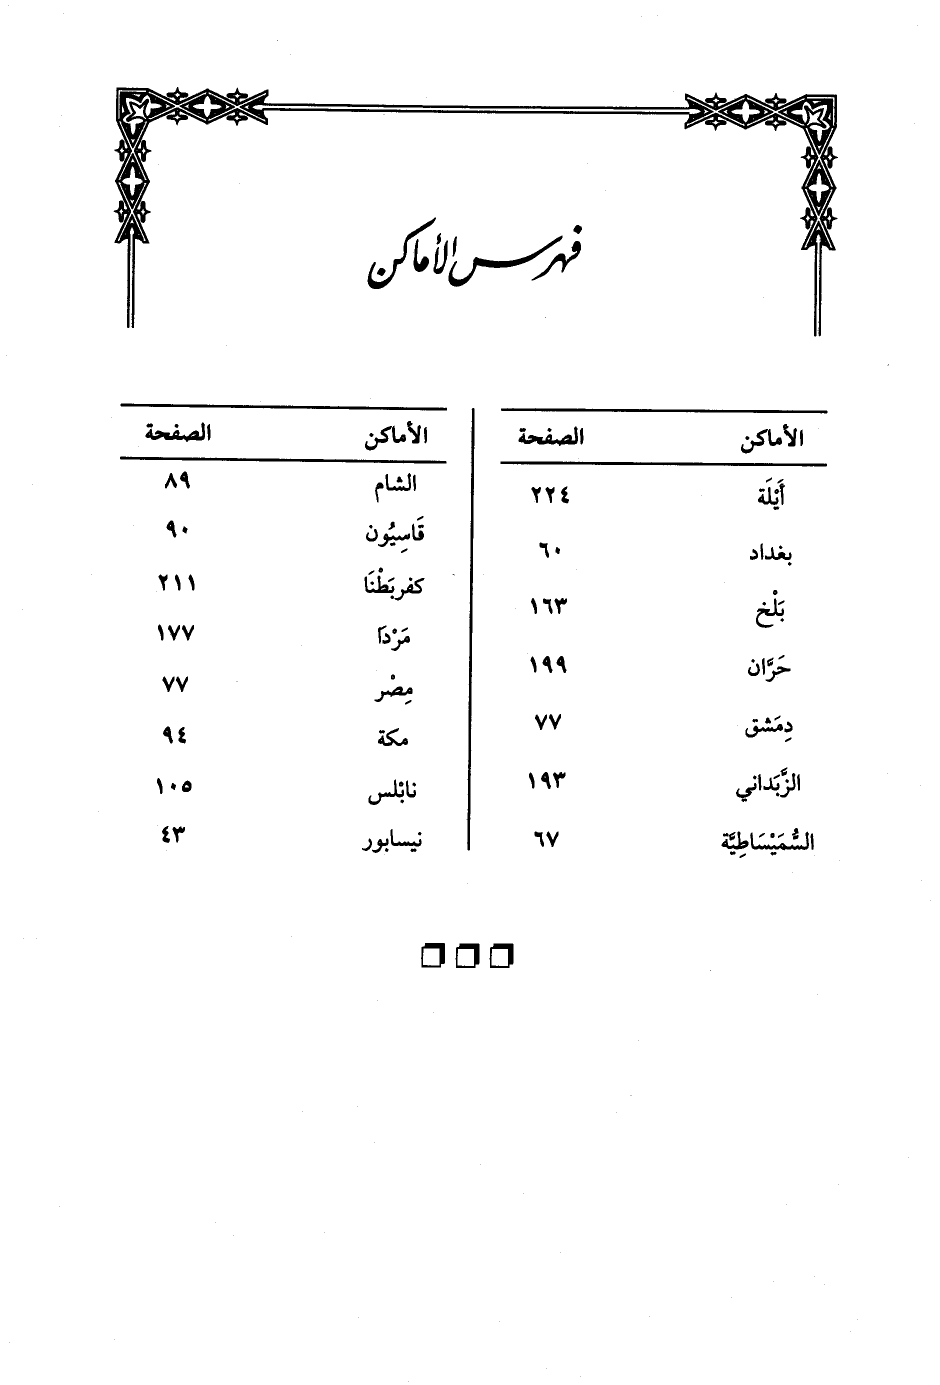 فهرس الأماكن
الأماكن الصفحة
أَيْلَة ٢٢٤
بغداد ٦٠
بَلْخ ١٦٣
حَرَّان ١٩٩
دِمَشق ٧٧
الزَّبَداني ١٩٣
السُّمَيْسَاطِيَّة ٦٧
الأماكن الصفحة
الشام ٨٩
قَاسِيُون ٩٠
كفربَطْنَا ٢١١
مَرْدَا ١٧٧
مِصْر ٧٧
مكة ٩٤
نابْلس ١٠٥
نيسابور ٤٣